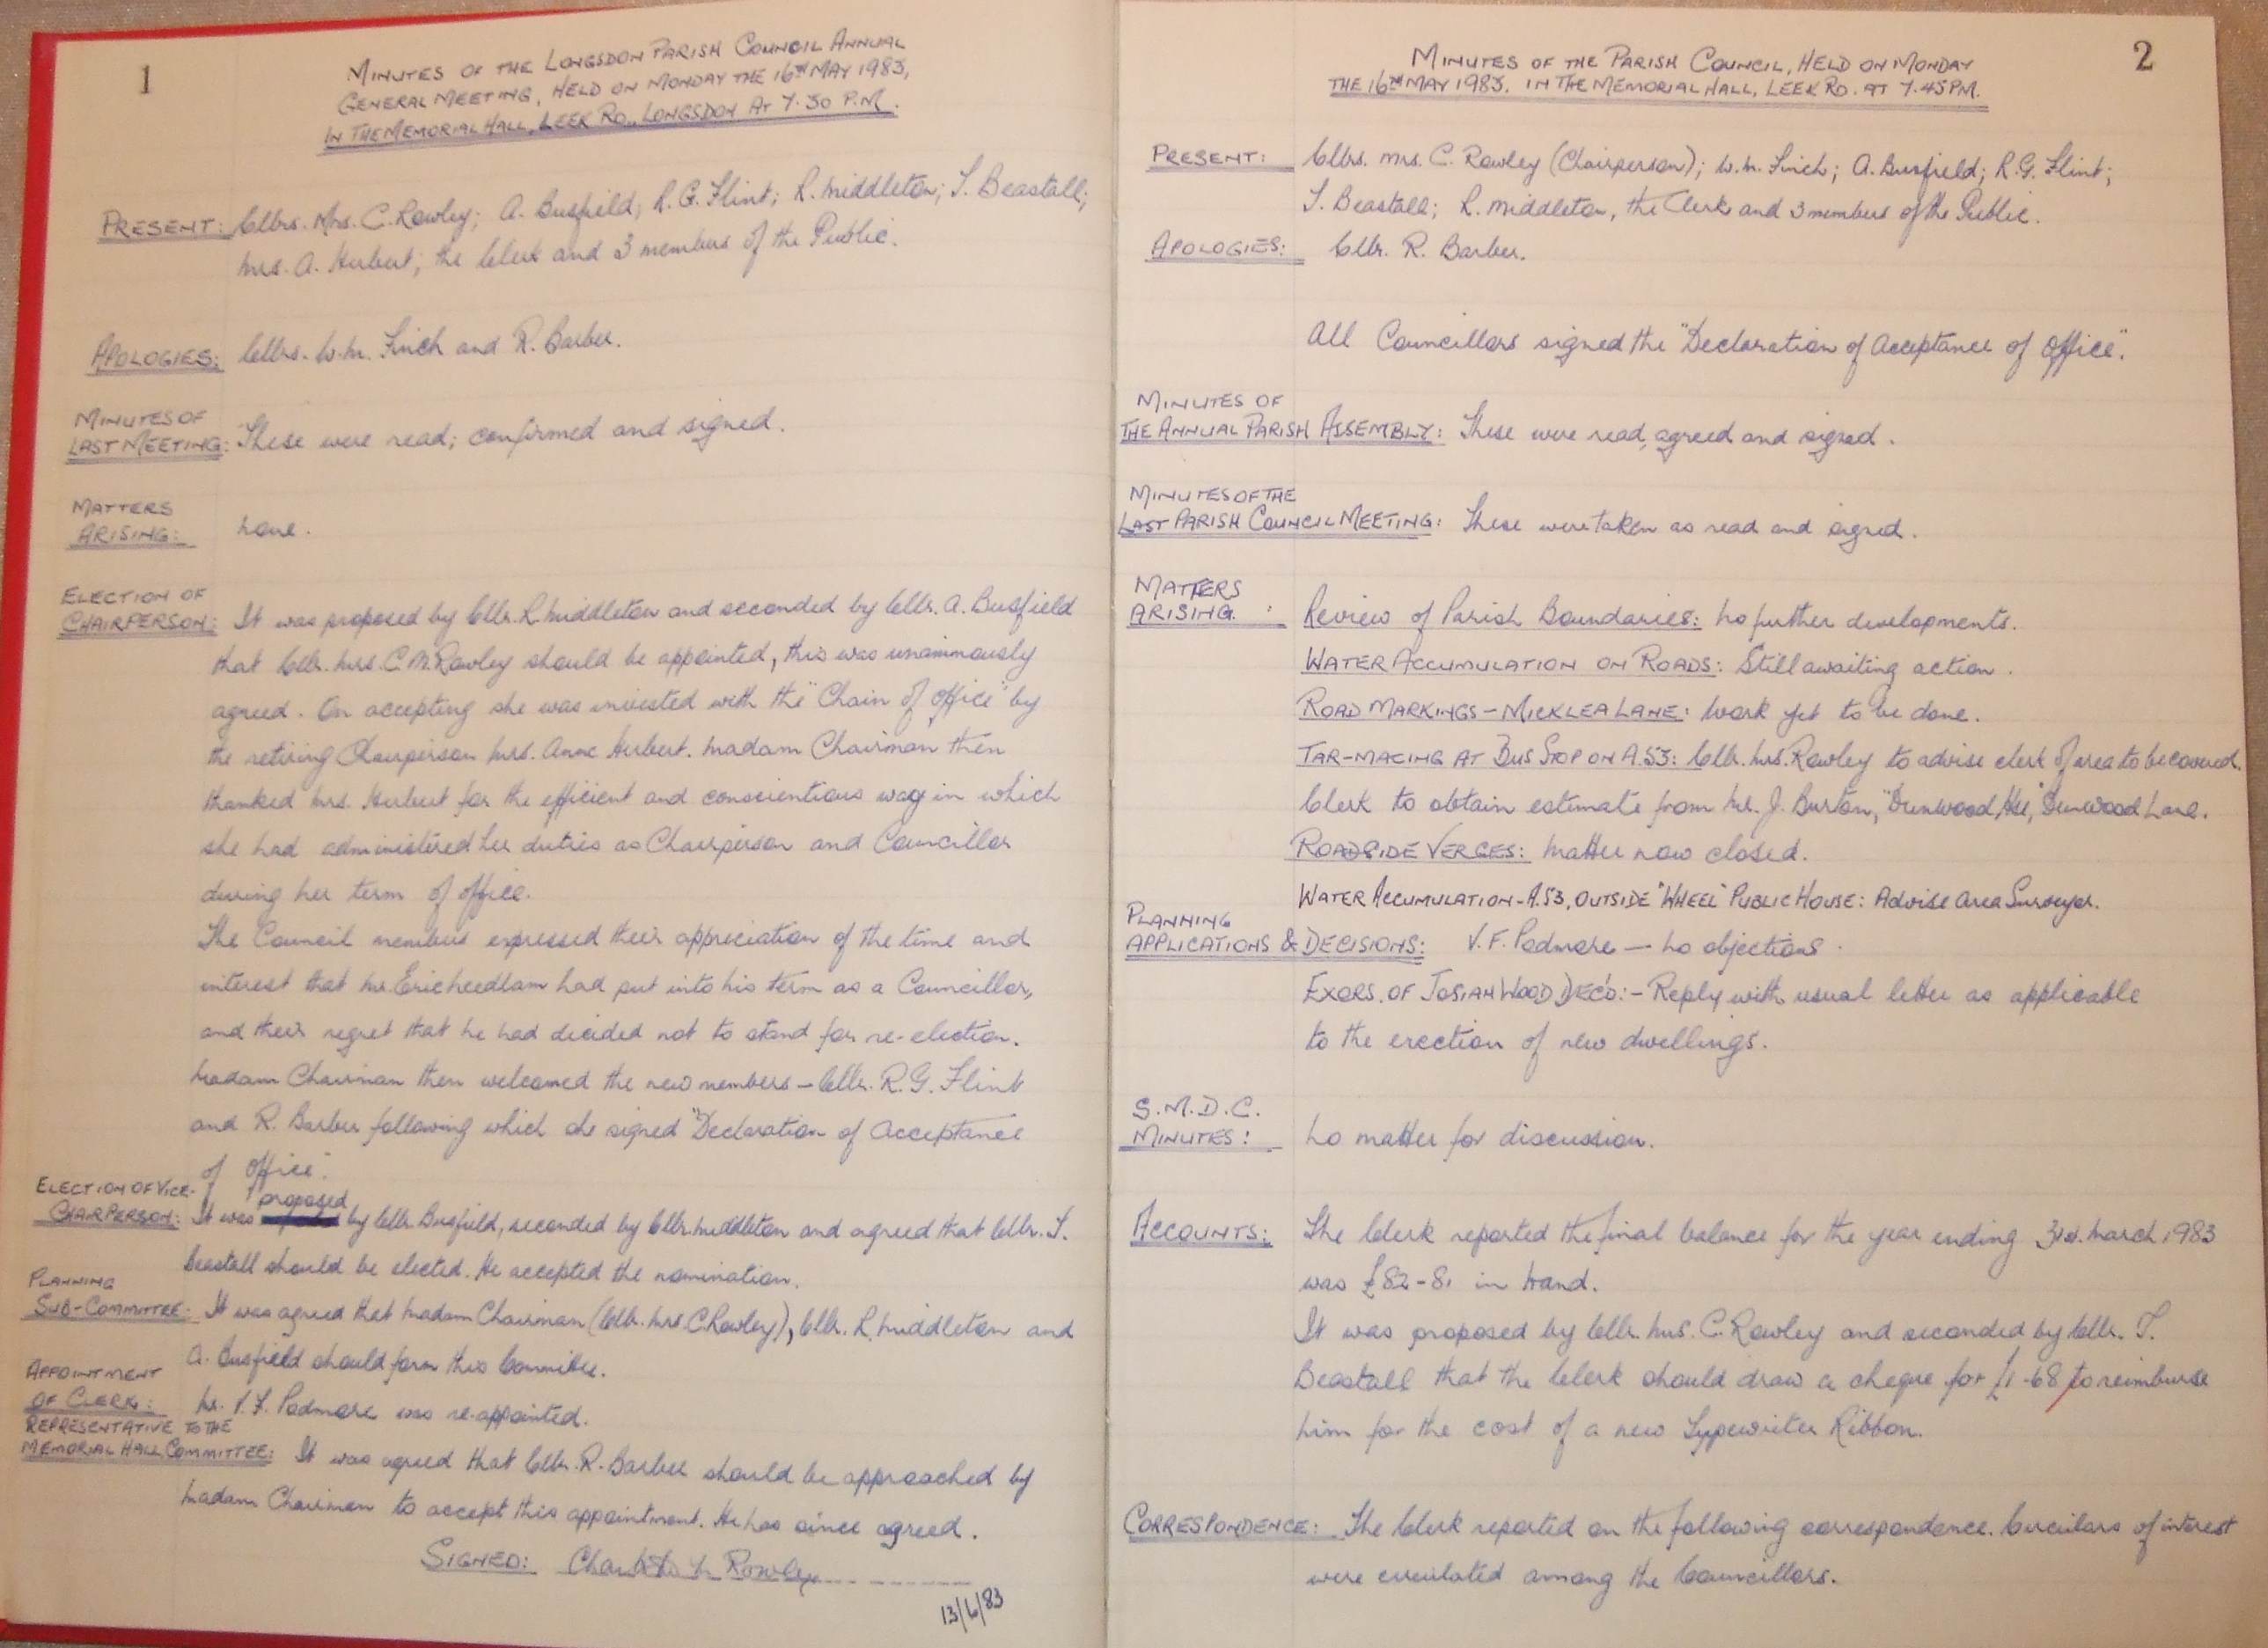 1
MINUTES OF THE LONGSDON PARISH COUNCIL ANNUAL
GENERAL MEETING, HELD ON MONDAY THE 16TH MAY 1983,
IN THE MEMORIAL HALL, LEEK RD., LONGSDON AT 7.30 P.M.
PRESENT: Cllrs. Mrs. C. Rowley; A. Busfield; R.G. Flint; R. Middleton; T. Beastall;
Mrs. A. Herbert; the Clerk and 3 members of the Public.
APOLOGIES: Cllrs. W.M. Finch and R. Barber.
MINUTES OF
LAST MEETING: These were read; confirmed and signed.
MATTERS
ARISING: None.
ELECTION OF
CHAIRPERSON: It was proposed by Cllr. R. Middleton and seconded by Cllr. A. Busfield
that Cllr. Mrs. C.M. Rowley should be appointed, this was unanimously
agreed. On accepting she was invested with the "Chain of Office" by
the retiring Chairperson Mrs. Anne Herbert. Madam Chairman then
thanked Mrs. Herbert for the efficient and conscientious way in which
she had administered her duties as Chairperson and Councillor
during her term of office.
The Council members expressed their appreciation of the time and
interest that Mr. Eric Needham had put into his term as a Councillor,
and their regret that he had decided not to stand for re-election.
Madam Chairman then welcomed the new members - Cllr. R.G. Flint
and R. Barber following which she signed "Declaration of Acceptance
of Office".
ELECTION OF VICE-
CHAIRPERSON: It was proposed by Cllr. Busfield, seconded by Cllr. Middleton and agreed that Cllr. T.
Beastall should be elected. He accepted the nomination.
PLANNING
SUB-COMMITTEE: It was agreed that Madam Chairman (Cllr. Mrs. C. Rowley), Cllr. R. Middleton and
A. Busfield should form this Committee.
APPOINTMENT
OF CLERK: Mr. V.F. Padmore was re-appointed.
REPRESENTATIVE TO THE
MEMORIAL HALL COMMITTEE: It was agreed that Cllr. R. Barber should be approached by
Madam Chairman to accept this appointment. He has since agreed.
SIGNED: Charlotte M Rowley
13/6/83
2
MINUTES OF THE PARISH COUNCIL, HELD ON MONDAY
THE 16TH MAY 1983, IN THE MEMORIAL HALL, LEEK RD. AT 7.45 P.M.
PRESENT: Cllrs. Mrs. C. Rowley (Chairperson); W.M. Finch; A. Busfield; R.G. Flint;
T. Beastall; R. Middleton, the Clerk and 3 members of the Public.
APOLOGIES: Cllr. R. Barber.
All Councillors signed the "Declaration of Acceptance of Office".
MINUTES OF
THE ANNUAL PARISH ASSEMBLY: These were read, agreed and signed.
MINUTES OF THE
LAST PARISH COUNCIL MEETING: These were taken as read and signed.
MATTERS
ARISING: Review of Parish Boundaries: No further developments.
WATER ACCUMULATION ON ROADS: Still awaiting action.
ROAD MARKINGS - MICKLEA LANE: Work yet to be done.
TAR-MACING AT BUS STOP ON A.53: Cllr. Mrs. Rowley to advise clerk of area to be covered.
Clerk to obtain estimate from Mr. J. Burton, "Dunwood Hse", Dunwood Lane.
ROADSIDE VERGES: Matter now closed.
WATER ACCUMULATION - A.53, OUTSIDE "WHEEL" PUBLIC HOUSE: Advise Area Surveyor.
PLANNING
APPLICATIONS & DECISIONS: V.F. Padmore - No objections.
EXORS. OF JOSIAH WOOD DEC'D:- Reply with usual letter as applicable
to the erection of new dwellings.
S.M.D.C.
MINUTES: No matter for discussion.
ACCOUNTS: The Clerk reported the final balance for the year ending 31st. March 1983
was £82-81 in hand.
It was proposed by Cllr. Mrs. C. Rowley and seconded by Cllr. T.
Beastall that the Clerk should draw a cheque for £1-68 to reimburse
him for the cost of a new Typewriter Ribbon.
CORRESPONDENCE: The Clerk reported on the following correspondence. Circulars of interest
were circulated among the Councillors.